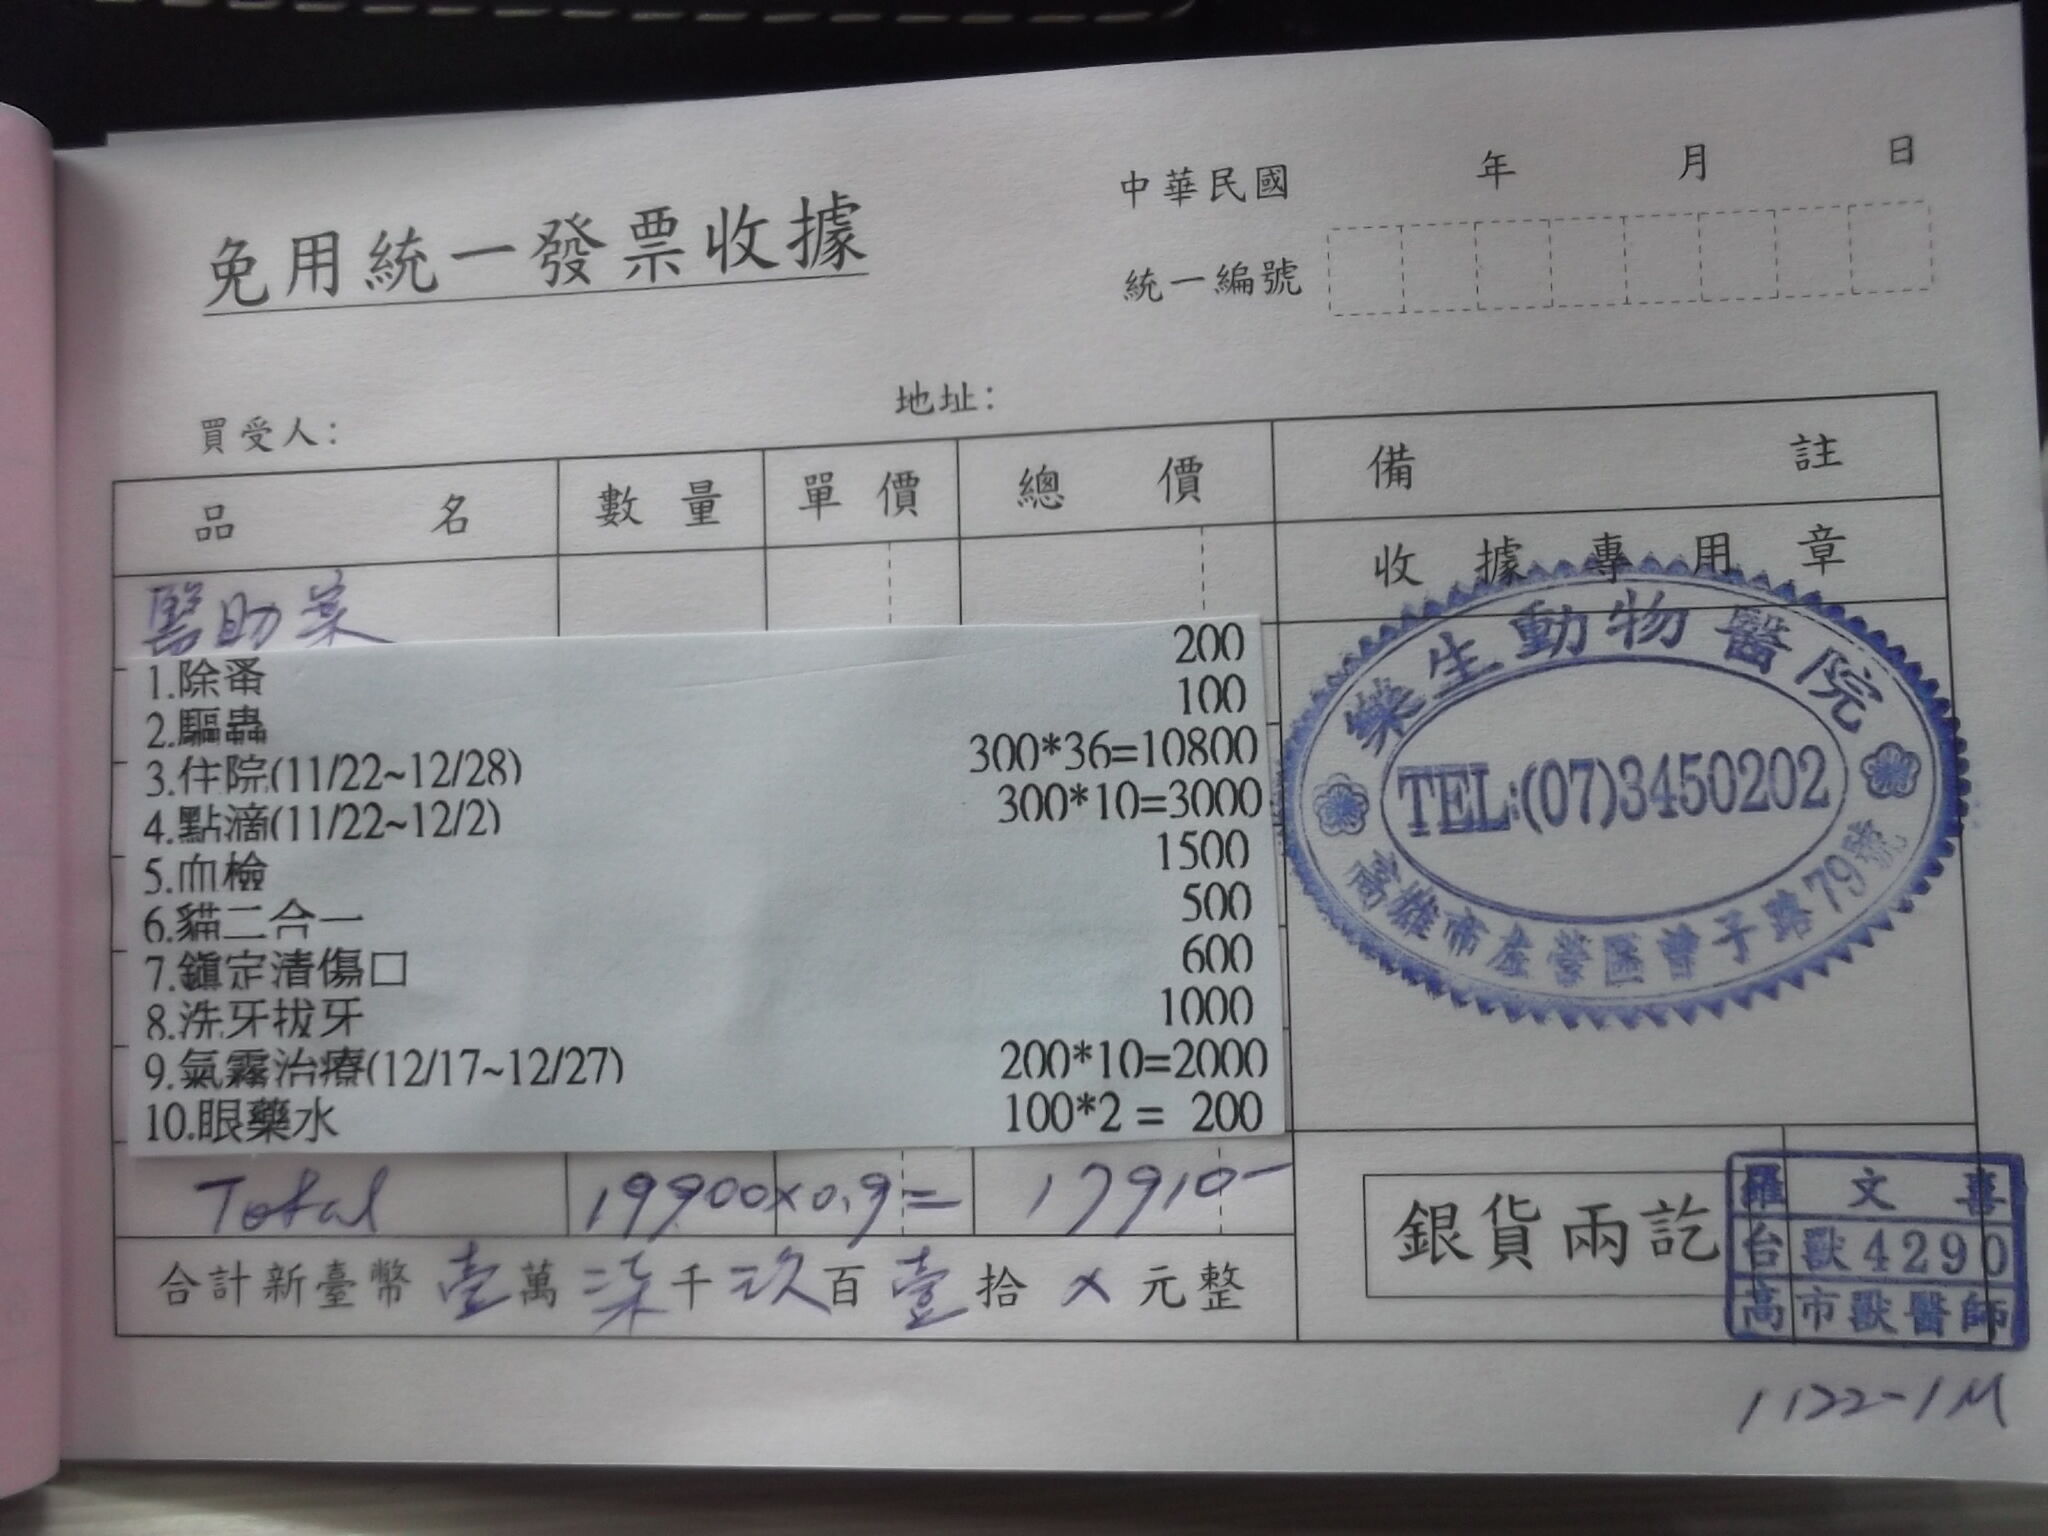 中華民國 年 月 日
免用統一發票收據
統一編號
買受人： 地址：
品名 數量 單價 總價 備註
收據專用章
醫助
1.除蚤 200
2.驅蟲 100
3.住院(11/22~12/28) 300*36=10800
4.點滴(11/22~12/2) 300*10=3000
5.血檢 1500
6.貓二合一 500
7.鎮定清傷口 600
8.洗牙拔牙 1000
9.氣霧治療(12/17~12/27) 200*10=2000
10.眼藥水 100*2 = 200
Total 19900x0.9= 17910-
合計新臺幣 壹萬柒千玖百壹拾x元整
樂生動物醫院
TEL:(07)3450202
高雄市左營區曾子路79號
銀貨兩訖
羅文喜
台獸4290
高市獸醫師
1122-1M